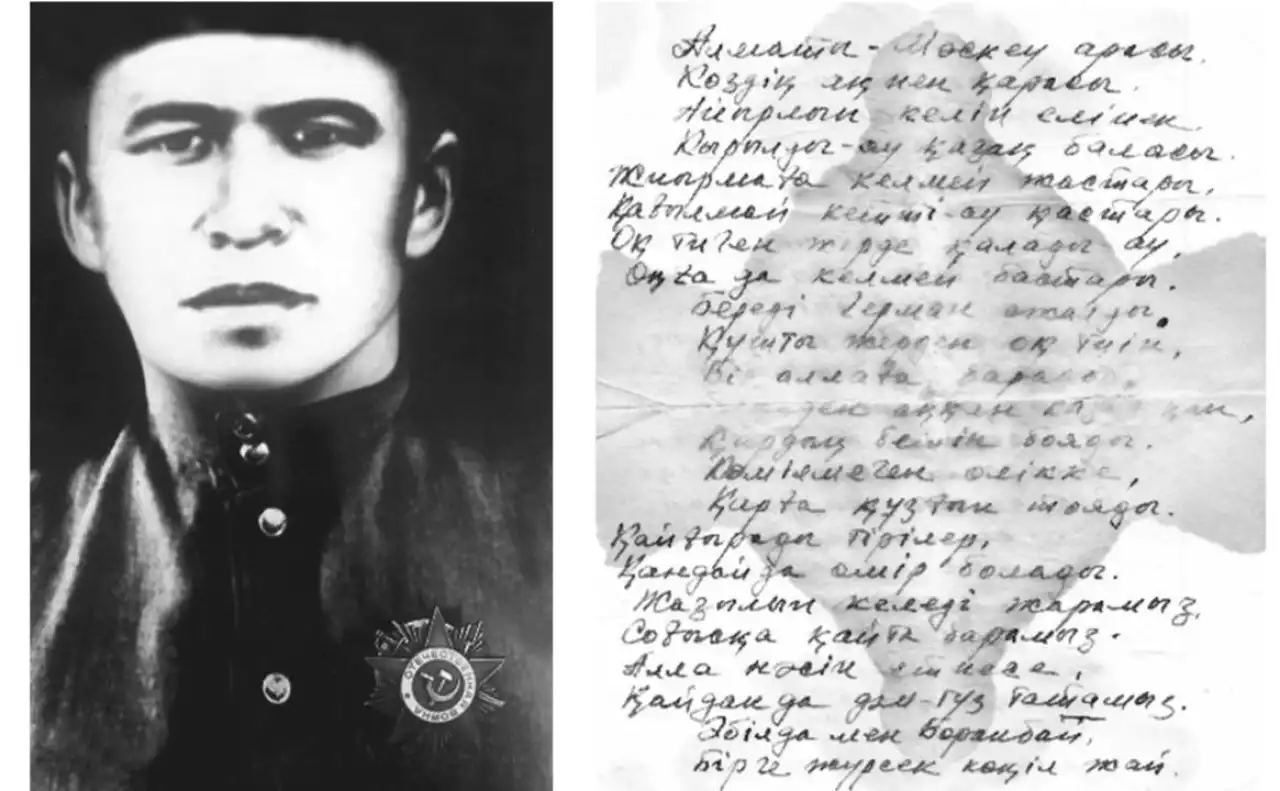 ОТЕЧЕСТВЕННАЯ ВОЙНА
Алматы - Мәскеу арасы.
Көздің ақ пен қарасы.
Айырлып келіп елінен
Қырылды-ау қазақ баласы.
Жиырмаға келмей жастары,
Қағылмай кетті-ау қастары.
Оқ тиген жерде қалады-ау,
Оңға да келмей бастары.
Береді Герман ажалды,
жерден оқ тиіп,
аллаға
аққан қан,
Қырдың бетін бояды.
Көмілмеген өлікке,
Қарға құзғын тояды.
Қайғырады тірілер,
Қандай да өмір болады.
Жазылып келеді жарамыз,
Соғысқа қайта барамыз.
Алла нәсіп етпесе,
Қайдан да дәм-тұз татамыз.
Әбілда мен Боранбай,
Бірге жүрсек көңіл жай.